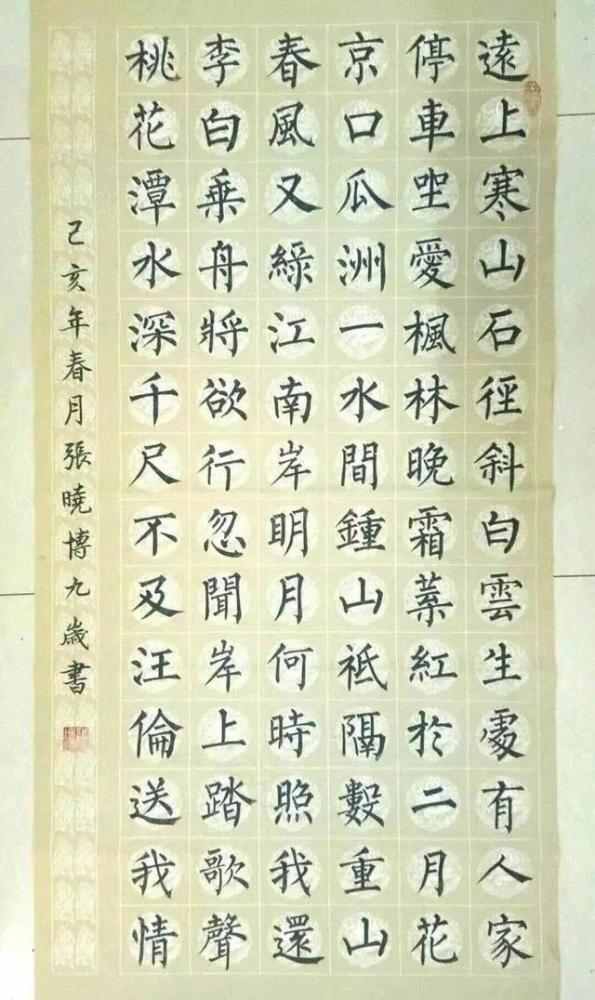 遠上寒山石徑斜白雲生處有人家
停車坐愛楓林晚霜葉紅於二月花
京口瓜洲一水間鍾山祗隔數重山
春風又綠江南岸明月何時照我還
李白乘舟將欲行忽聞岸上踏歌聲
桃花潭水深千尺不及汪倫送我情
己亥年春月張曉博九歲書